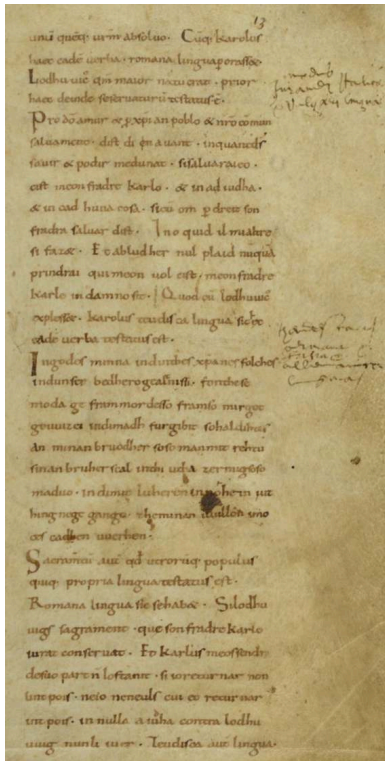 13
unū quēq; urm absoluo. Cūq; karolus
haec eadē uerba. romana lingua poraśśet.
Lodhuuic̄ qm̄ maior natu erat. prior
haec deinde se seruaturū testatus ē.
Pro dō amur & p xp̄ian poblo & nr̄o cōmun
saluament. dist di en auant. inquantd̄s
sauir & podir medunat. sisaluaraieo.
cist meon fradre karlo. & in ad iudha.
& in cad huna cosa. sicū om p dreit son
fradra saluar dist. Ino quid il mialtre
si faz&. Et abludher nul plaid nūquā
prindrai qui meon uol cist. meon fradre
karle in damno sit. Quod cū lodhuuic̄
explesśet. karolus teudisca lingua sic hec
eadē uerba testatus est.
Ingodes minna indinthes xp̄anes folches
indunser bedhero gealtnissi. fonthese
moda ge frammordesso framso mirgot
geuuizci indimadh furgibit sohaldihtes
an minan bruodher soso manmit rehtu
sinan bruher scal inthi utha zermigsoso
maduo. indimit luheren in nohhein iut
hing nege gango. zheminan uuillon imo
ces cadhen uuerhen.
Sacramtū aut qd utrorūq; populus
quiq; propria lingua testatus est.
Romana lingua sic se habet. Silodhu
uigs sagrament. que son fradre karlo
iurat conseruat. Et karlus meossendr
desuo part n̄ lostanit. si ioreturnar non
lint pois. neio neneuls cui eo returnar
int pois. in nulla aiudha contra lodhu
uuig nunli iuer. Teudisca aut lingua.